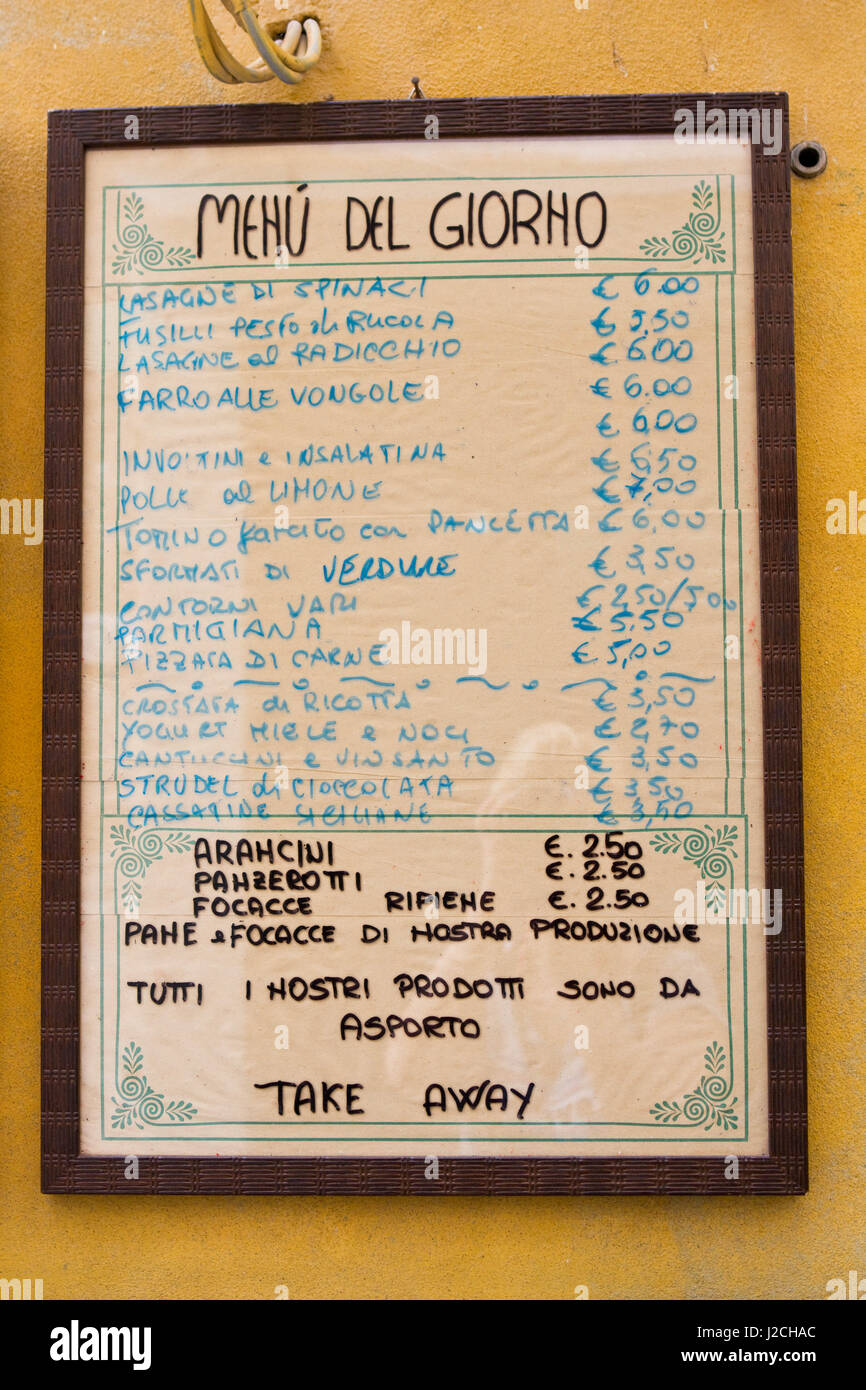 MENÚ DEL GIORNO
LASAGNE DI SPINACI € 6.00
FUSILLI PESTO di RUCOLA € 5,50
LASAGNE al RADICCHIO € 6,00
FARRO ALLE VONGOLE € 6.00
€ 6,00
INVOLTINI e INSALATINA € 6,50
al LIMONE € 7,00
TOMINO farcito con PANCETTA € 6,00
SFORMATI DI VERDURE € 3,50
CONTORNI VARI € 2,50/5,00
PARMIGIANA € 5,50
PIZZATA DI CARNE € 5,00
CROSTATA di RICOTTA € 3,50
YOGURT MIELE e NOCI € 2,70
CANTUCCINI e VINSANTO € 3,50
STRUDEL di CIOCCOLATA € 3,50
CASSATINE SICILIANE € 3,50
ARANCINI €. 2.50
PANZEROTTI €. 2.50
FOCACCE RIPIENE €. 2.50
PANE e FOCACCE DI NOSTRA PRODUZIONE
TUTTI I NOSTRI PRODOTTI SONO DA
ASPORTO
TAKE AWAY
alamy
Image ID: J2CHAC
www.alamy.com